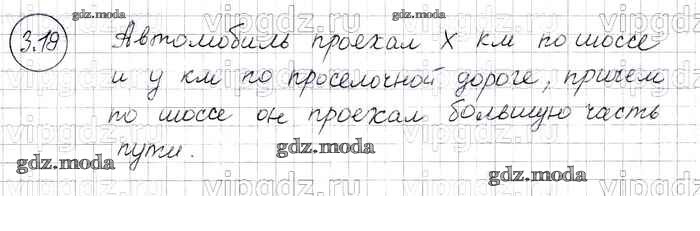 gdz.moda gdz.moda gdz.moda
vipgdz.ru vipgdz.ru
3.19 Автомобиль проехал х км по шоссе
и у км по проселочной дороге, причем
по шоссе он проехал большую часть
пути.
gdz.moda gdz.moda
gdz.moda
vipgdz.ru vipgdz.ru